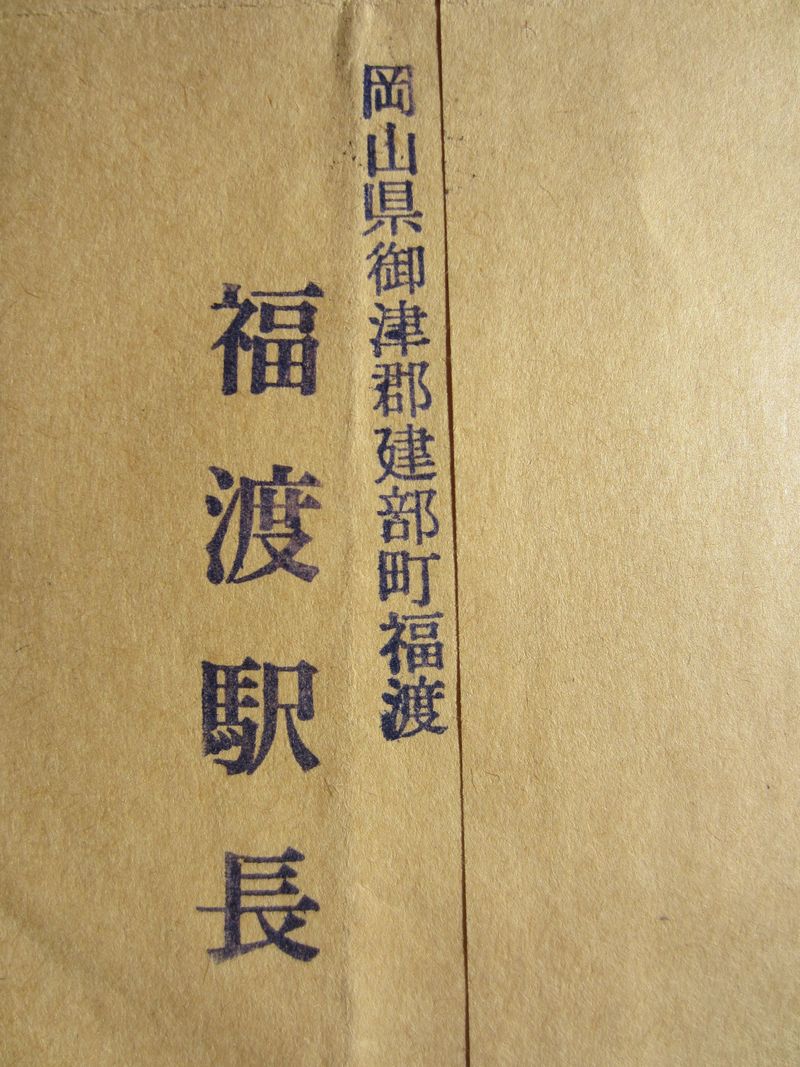 岡山県御津郡建部町福渡
福渡駅長